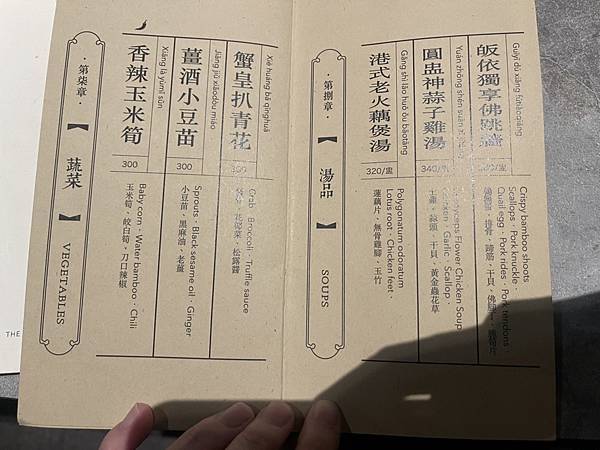 ·第柒章·
【 蔬菜 】
VEGETABLES
Xiè huáng bā qīnghuā
蟹皇扒青花
Crab · Broccoli · Truffle sauce
花椰菜、松露醬
Jiāng jiǔ xiǎodòu miáo
薑酒小豆苗
300
Sprouts · Black sesame oil · Ginger
小豆苗、黑麻油、老薑
Xiāng là yùmǐ sǔn
香辣玉米筍
300
Baby corn · Water bamboo · Chili
玉米筍、皎白筍、刀口辣椒
·第捌章·
【 湯品 】
SOUPS
Guīyī dú xiǎng fótiàoqiáng
皈依獨享佛跳牆
Crispy bamboo shoots
Scallops · Pork knuckle ·
Quail egg · Pork rides · Pork tendons
排骨、蹄筋、干貝、
Yuán zhōng shén suàn
圓盅神蒜子雞湯
340/
Flower Chicken Soup
Chicken · Garlic · Scallop ·
土雞、蒜頭、干貝、黃金蟲花草
Gǎng shì lǎo huǒ ǒu bāotāng
港式老火藕煲湯
320/盅
Polygonatum odoratum
Lotus root · Chicken feet ·
蓮藕片、無骨雞腳、玉竹
THE